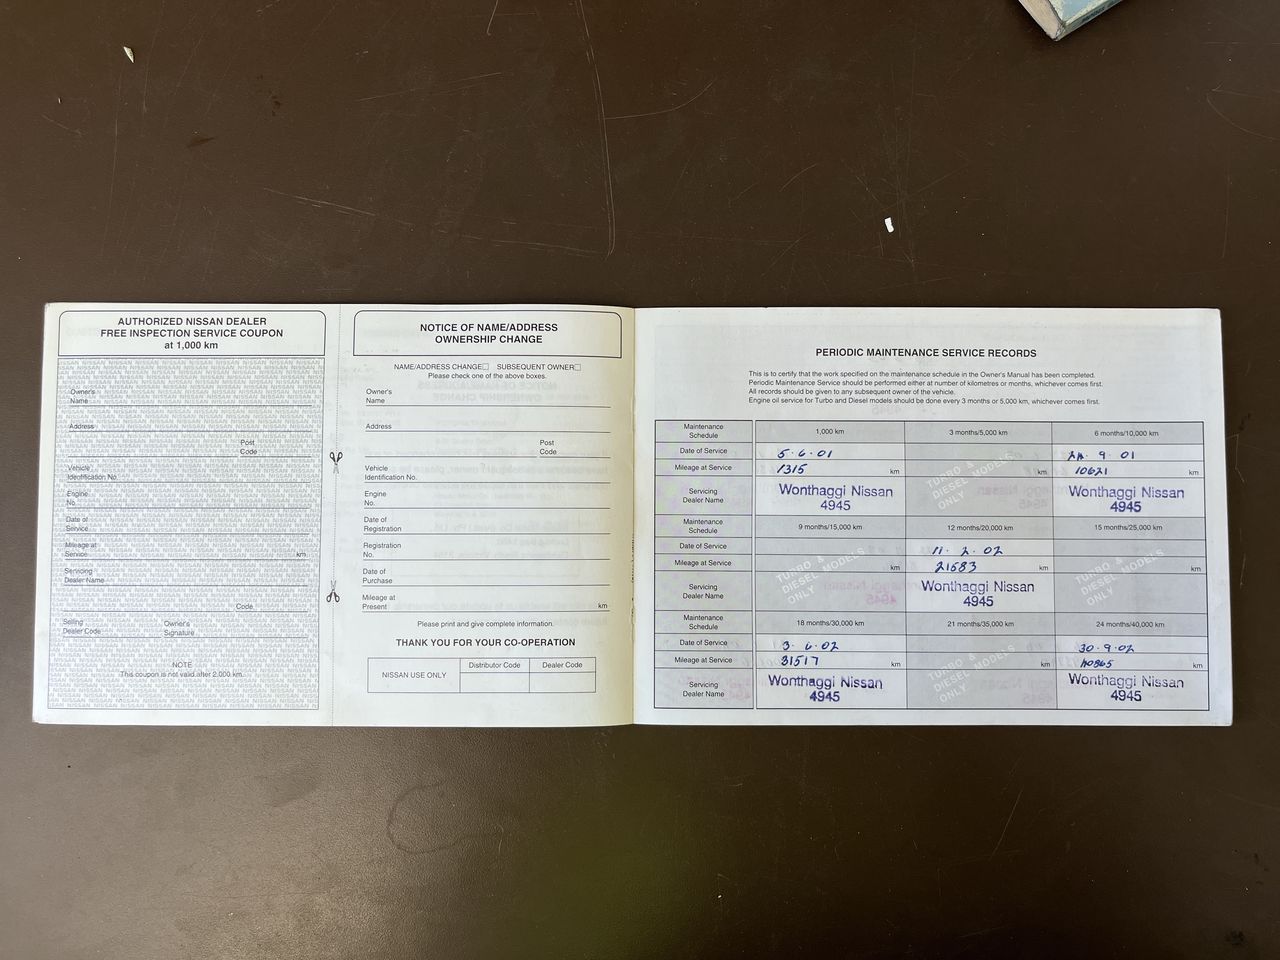 AUTHORIZED NISSAN DEALER
FREE INSPECTION SERVICE COUPON
at 1,000 km
Owner's
Name
Address
Post
Code
Vehicle
Identification No.
Engine
No.
Date of
Service
Mileage at
Service
km
Servicing
Dealer Name
Code
Selling
Dealer Code
Owner's
Signature
NOTE
This coupon is not valid after 2,000 km.
NOTICE OF NAME/ADDRESS
OWNERSHIP CHANGE
NAME/ADDRESS CHANGE□ SUBSEQUENT OWNER□
Please check one of the above boxes.
Owner's
Name
Address
Post
Code
Vehicle
Identification No.
Engine
No.
Date of
Registration
Registration
No.
Date of
Purchase
Mileage at
Present
km
Please print and give complete information.
THANK YOU FOR YOUR CO-OPERATION
NISSAN USE ONLY
Distributor Code
Dealer Code
PERIODIC MAINTENANCE SERVICE RECORDS
This is to certify that the work specified on the maintenance schedule in the Owner's Manual has been completed.
Periodic Maintenance Service should be performed either at number of kilometres or months, whichever comes first.
All records should be given to any subsequent owner of the vehicle.
Engine oil service for Turbo and Diesel models should be done every 3 months or 5,000 km, whichever comes first.
Maintenance
Schedule
1,000 km
3 months/5,000 km
6 months/10,000 km
Date of Service
5·6·01
9·01
Mileage at Service
1315 km
km
10621 km
Servicing
Dealer Name
Wonthaggi Nissan
4945
TURBO &
DIESEL MODELS
ONLY
Wonthaggi Nissan
4945
Maintenance
Schedule
9 months/15,000 km
12 months/20,000 km
15 months/25,000 km
Date of Service
11·2·02
Mileage at Service
km
21683 km
km
Servicing
Dealer Name
TURBO &
DIESEL MODELS
ONLY
Wonthaggi Nissan
4945
TURBO &
DIESEL MODELS
ONLY
Maintenance
Schedule
18 months/30,000 km
21 months/35,000 km
24 months/40,000 km
Date of Service
3·6·02
30·9·02
Mileage at Service
31517 km
km
km
Servicing
Dealer Name
Wonthaggi Nissan
4945
TURBO &
DIESEL MODELS
ONLY
Wonthaggi Nissan
4945